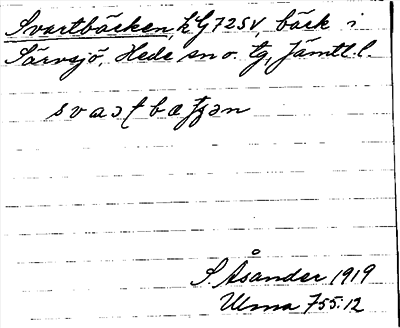 Svartbäcken, LG 72 SV, bäck i
Särvsjö, Hede sn o. tg, Jämtl. l.
S. Åsander 1919
Ulma 755:12